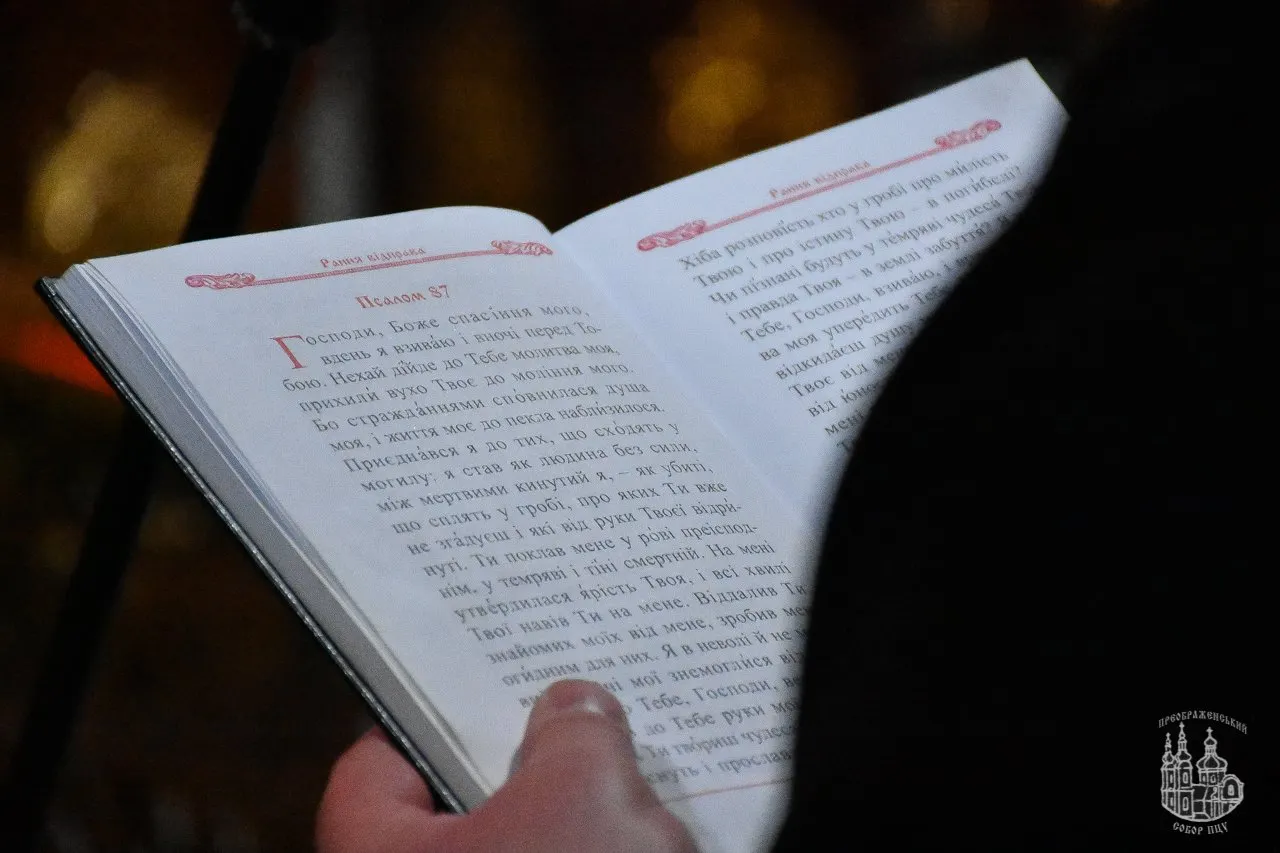 Рання відправа
Псалом 87
Господи, Боже спасі́ння мого,
вдень я взива́ю і вночі перед То-
бою. Нехай ді́йде до Тебе молитва моя,
прихили́ вухо Твоє до молі́ння мого.
Бо стражда́ннями сповнилася душа
моя, і життя моє до пекла набли́зилося.
Приєдна́вся я до тих, що схо́дять у
могилу; я став як людина без сили,
між мертвими кинутий я, – як убиті,
що сплять у гробі, про яких Ти вже
не зга́дуєш і які від руки Твоєї відри-
нуті. Ти поклав мене у рові преіспод-
нім, у темряві і ті́ні смертній. На мені
утве́рдилася я́рість Твоя, і всі хвилі
Твої навів Ти на мене. Віддалив Ти
знайомих моїх від мене, зробив
оги́дним для них. Я в неволі й не
мої знемогли́ся
Тебе, Господи,
до Тебе руки мої
Ти тво́риш чудеса
і прослав
Рання відправа
Хіба розпові́сть хто у гробі про ми́лість
Твою і про і́стину Твою – в поги́белі?
Чи пі́знані будуть у те́мряві чудеса́
і правда Твоя – в землі забуття?
Тебе, Господи, взива́ю, і
ва моя упере́дить
відкида́єш душу
Твоє від
від ю́
мені
ПРЕОБРАЖЕНСЬКИЙ
СОБОР ПЦУ